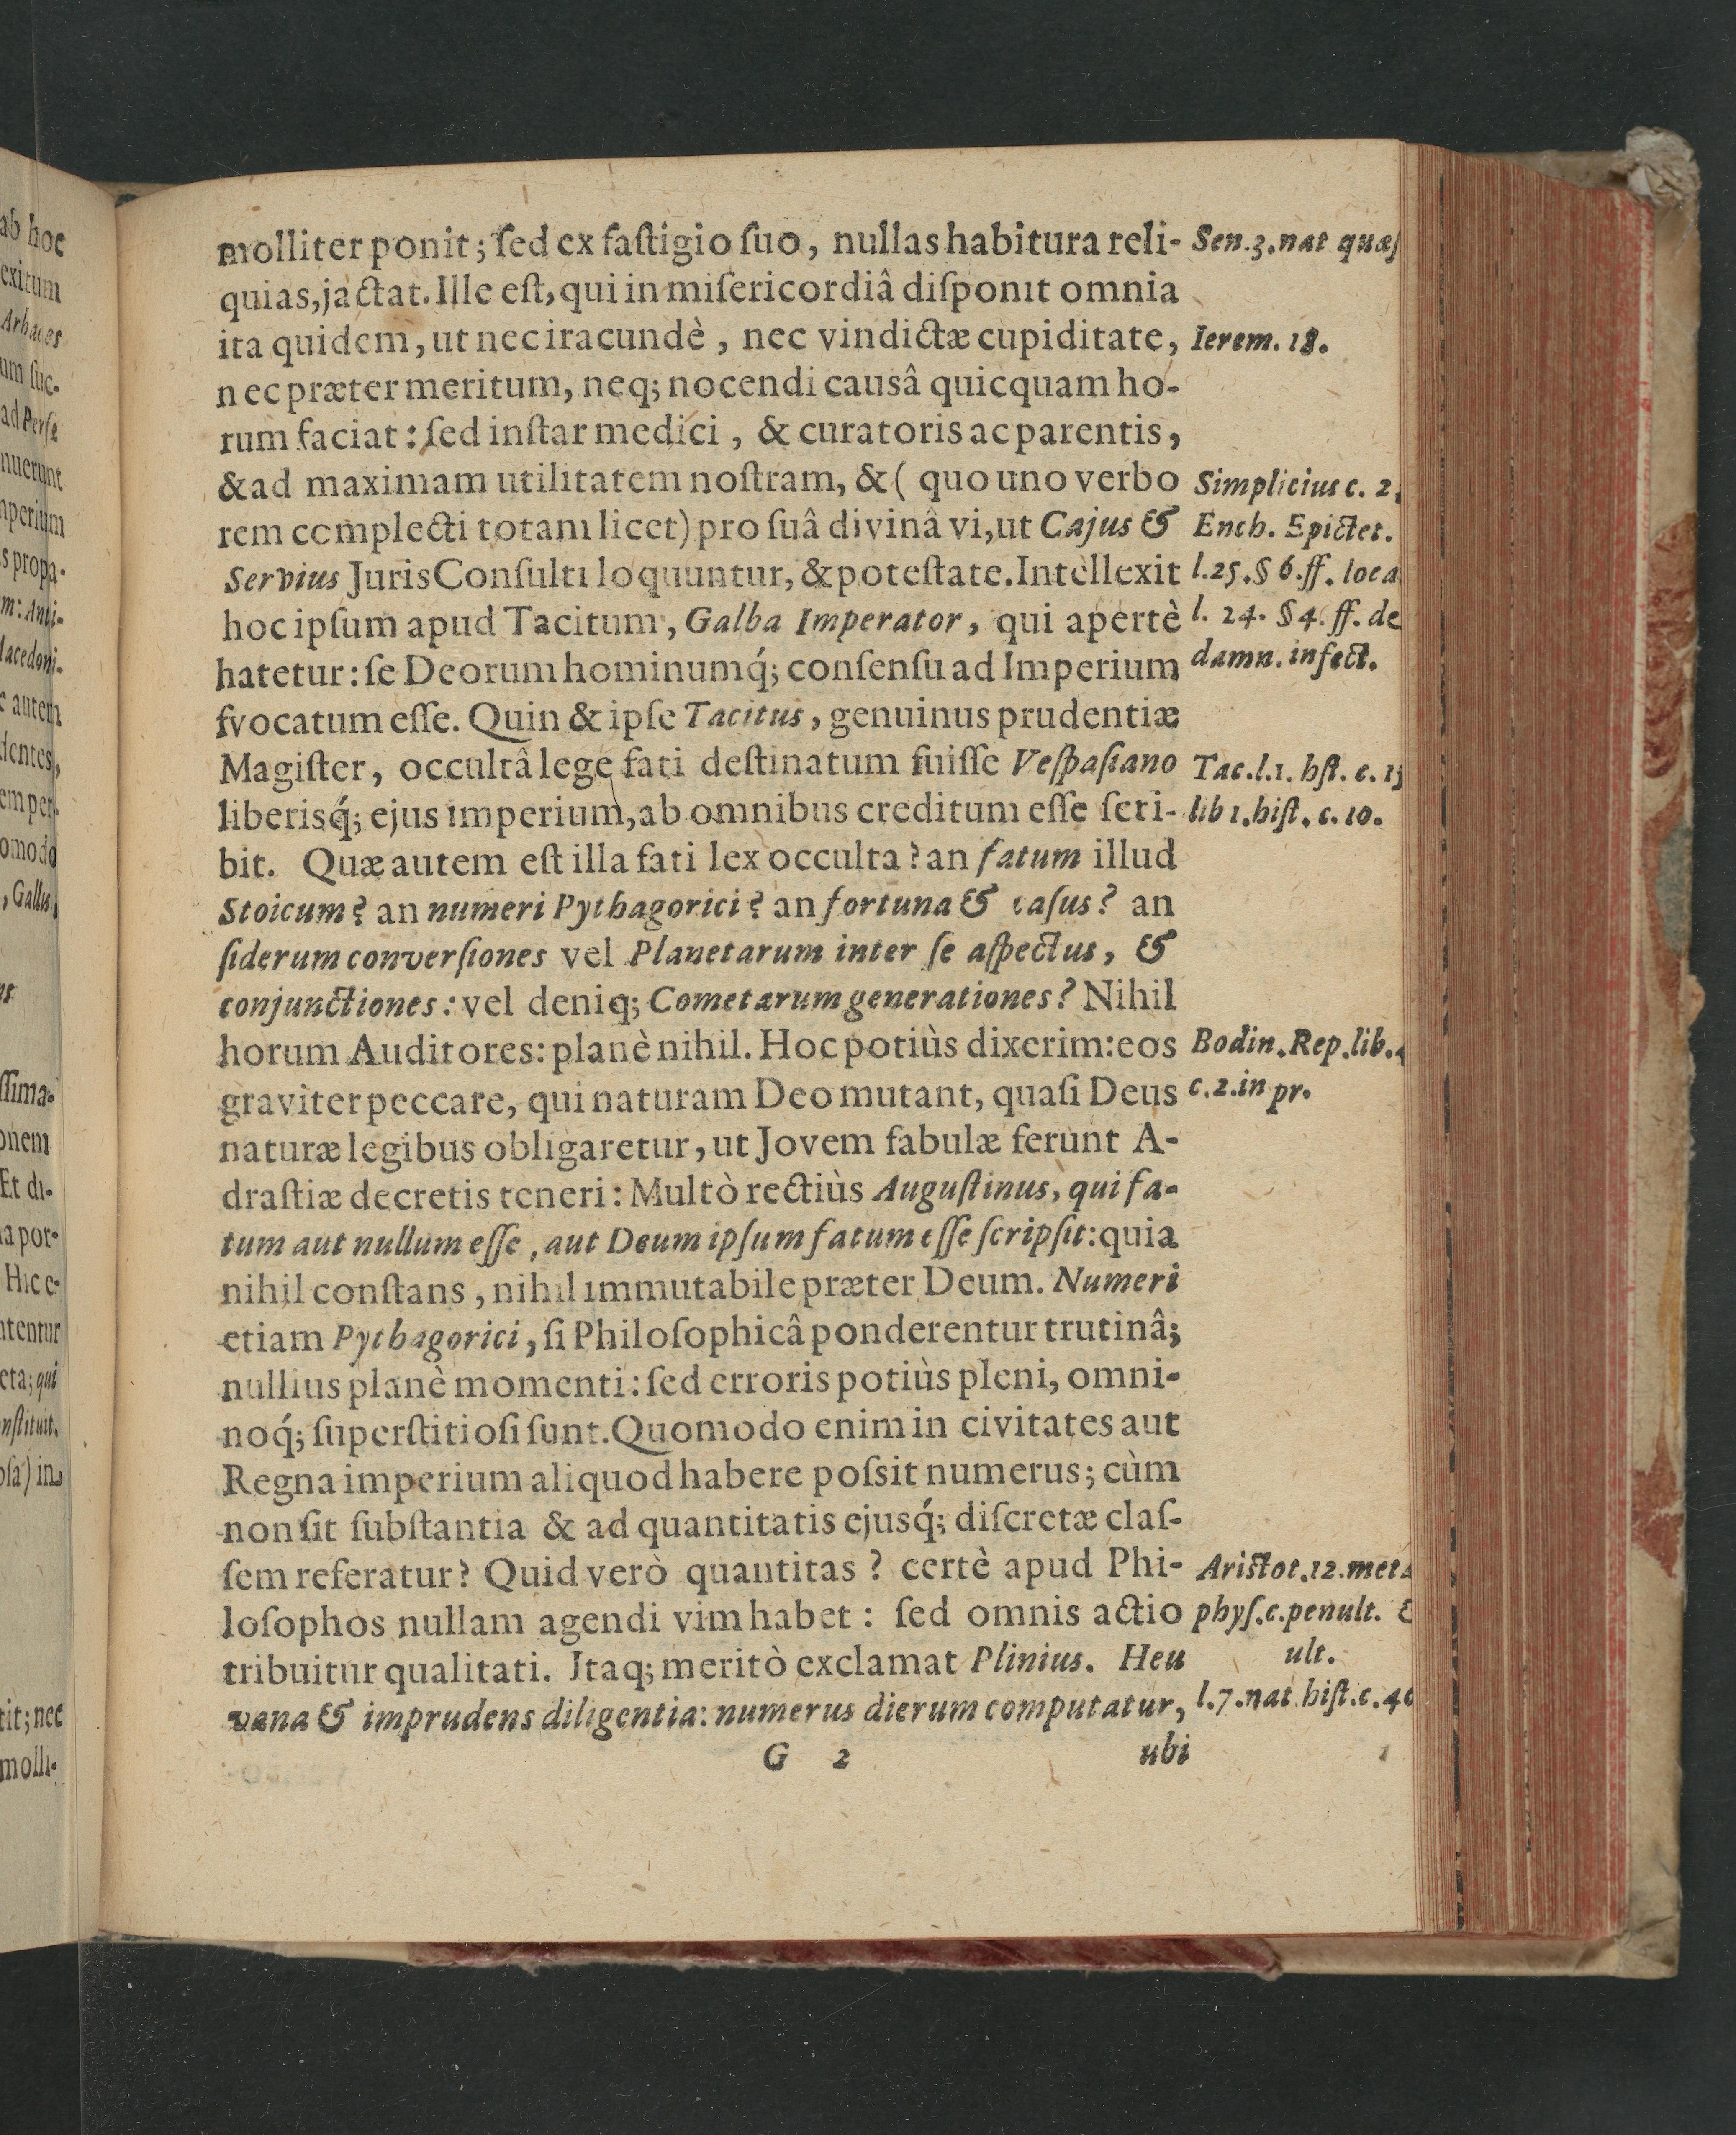 molliter ponit; ſed ex faſtigio ſuo, nullas habitura reli-
quias, jactat. Ille eſt, qui in miſericordiâ diſponit omnia
ita quidem, ut nec iracundè, nec vindictæ cupiditate,
nec præter meritum, neq; nocendi causâ quicquam ho-
rum faciat: ſed inſtar medici, & curatoris ac parentis,
& ad maximam utilitatem noſtram, & ( quo uno verbo
rem complecti totam licet) pro ſuâ divinâ vi, ut Cajus &
Servius JurisConſulti loquuntur, & poteſtate. Intellexit
hoc ipſum apud Tacitum, Galba Imperator, qui apertè
hatetur: ſe Deorum hominumq́; conſenſu ad Imperium
fvocatum eſſe. Quin & ipſe Tacitus, genuinus prudentiæ
Magiſter, occultâ lege fati deſtinatum fuiſſe Veſpaſiano
liberisq́; ejus imperium, ab omnibus creditum eſſe ſcri-
bit. Quæ autem eſt illa fati lex occulta? an fatum illud
Stoicum? an numeri Pythagorici? an fortuna & caſus? an
ſiderum converſiones vel Planetarum inter ſe aſpectus, &
conjunctiones: vel deniq; Cometarum generationes? Nihil
horum Auditores: planè nihil. Hoc potiùs dixerim: eos
graviter peccare, qui naturam Deo mutant, quaſi Deus
naturæ legibus obligaretur, ut Jovem fabulæ ferunt A-
draſtiæ decretis teneri: Multò rectiùs Auguſtinus, qui fa-
tum aut nullum eſſe, aut Deum ipſum fatum eſſe ſcripſit: quia
nihil conſtans, nihil immutabile præter Deum. Numeri
etiam Pythagorici, ſi Philoſophicâ ponderentur trutinâ;
nullius planè momenti: ſed erroris potiùs pleni, omni-
noq́; ſuperſtitioſi ſunt. Quomodo enim in civitates aut
Regna imperium aliquod habere poſsit numerus; cùm
non ſit ſubſtantia & ad quantitatis ejusq́; diſcretæ claſ-
ſem referatur? Quid verò quantitas? certè apud Phi-
loſophos nullam agendi vim habet: ſed omnis actio
tribuitur qualitati. Itaq; meritò exclamat Plinius. Heu
vana & imprudens diligentia: numerus dierum computatur,
G 2
ubi
Sen. 3. nat quæſ
Ierem. 18.
Simplicius c. 2.
Ench. Epictet.
l. 25. § 6. ff. loca
l. 24. § 4. ff. de
damn. infect.
Tac. l. 1. hſt. c. 15
lib 1. hiſt. c. 10.
Bodin. Rep. lib. 4
c. 2. in pr.
Ariſtot. 12. meta
phyſ. c. penult. &
ult.
l. 7. nat hiſt. c. 40
ab hoc
exitum
Arbaces
um ſuc-
ad Perſæ
nuerunt
mperium
s propa-
m: Anti-
Macedoni-
e autem
dentes,
emper.
omodo
, Gallus,
ſſima-
onem
Et di-
a por-
Hic e-
tentur
eta; qui
nſtituit.
oſa) in
tit; nec
molli-